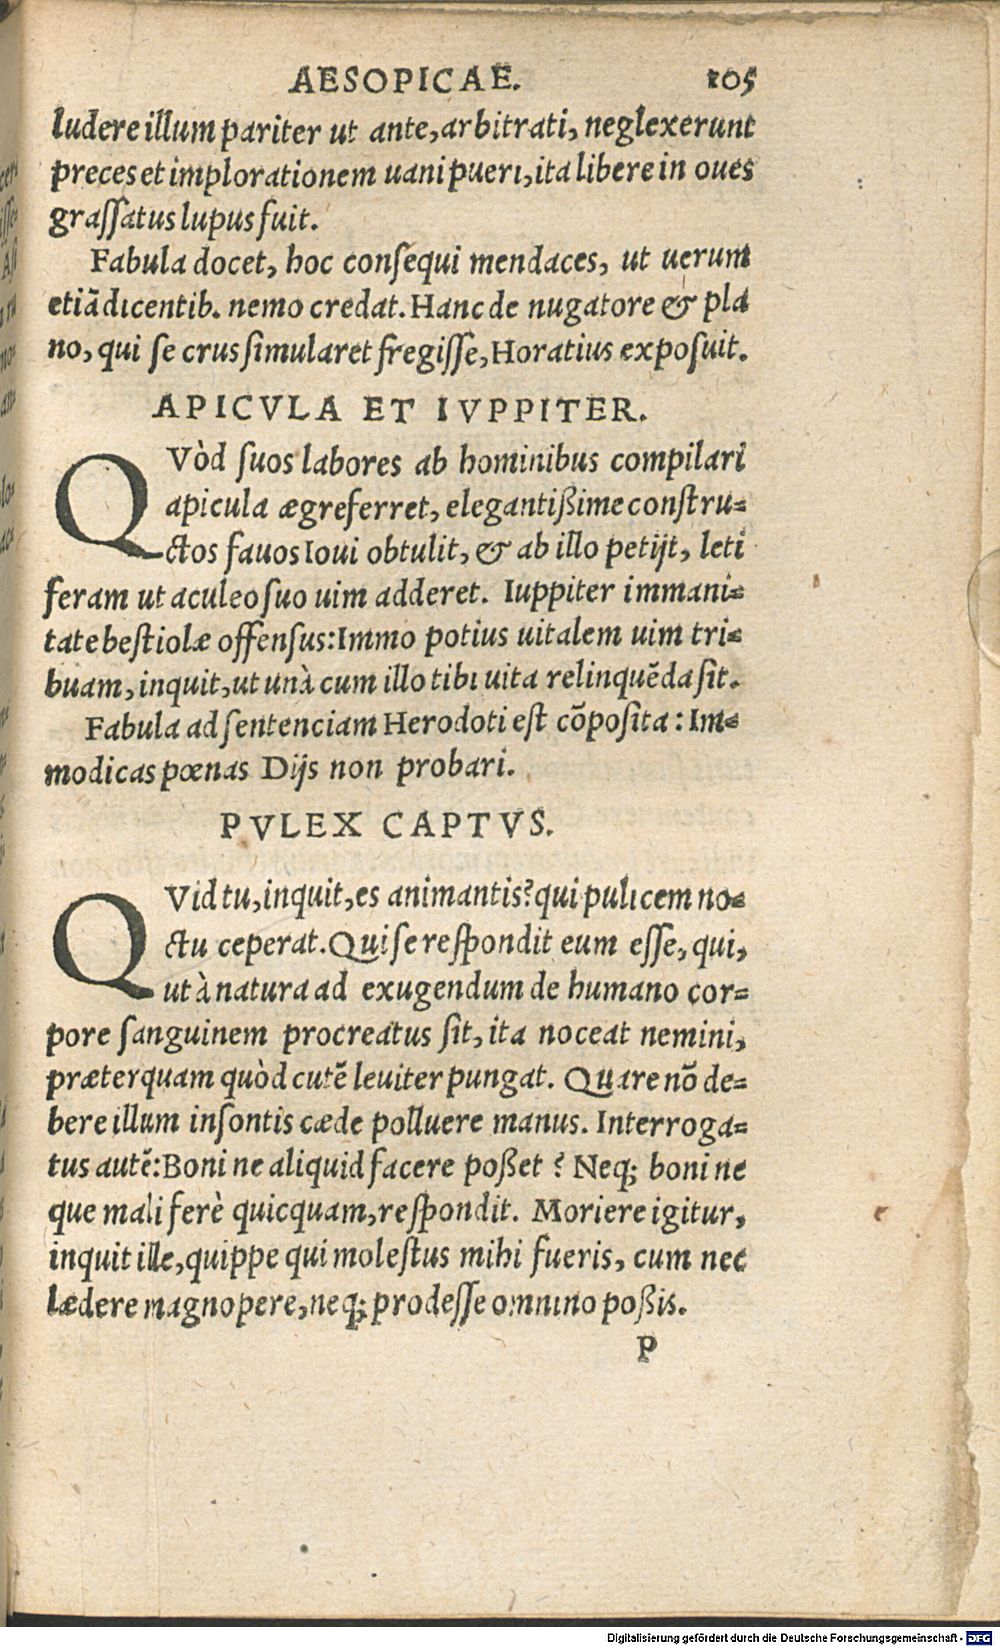 AESOPICAE. 105
ludere illum pariter ut ante, arbitrati, neglexerunt
preces et implorationem uani pueri, ita libere in oues
graſſatus lupus fuit.
Fabula docet, hoc conſequi mendaces, ut uerum
etiã dicentib. nemo credat. Hanc de nugatore & pla
no, qui ſe crus ſimularet fregiſſe, Horatius expoſuit.
APICVLA ET IVPPITER.
QVòd ſuos labores ab hominibus compilari
apicula ægre ferret, elegantißime conſtru-
ctos fauos Ioui obtulit, & ab illo petijt, leti
feram ut aculeo ſuo uim adderet. Iuppiter immani-
tate beſtiolæ offenſus: Immo potius uitalem uim tri-
buam, inquit, ut unà cum illo tibi uita relinquẽda ſit.
Fabula ad ſentenciam Herodoti eſt cõpoſita: Im-
modicas pœnas Dijs non probari.
PVLEX CAPTVS.
QVid tu, inquit, es animantis? qui pulicem no-
ctu ceperat. Qui ſe reſpondit eum eſſe, qui,
ut à natura ad exugendum de humano cor-
pore ſanguinem procreatus ſit, ita noceat nemini,
præterquam quòd cutẽ leuiter pungat. Quare nõ de-
bere illum inſontis cæde polluere manus. Interroga-
tus autẽ: Boni ne aliquid facere poßet? Neq; boni ne
que mali ferè quicquam, reſpondit. Moriere igitur,
inquit ille, quippe qui moleſtus mihi fueris, cum nec
lædere magnopere, neq; prodeſſe omnino poßis.
P
Digitalisierung gefördert durch die Deutsche Forschungsgemeinschaft - DFG